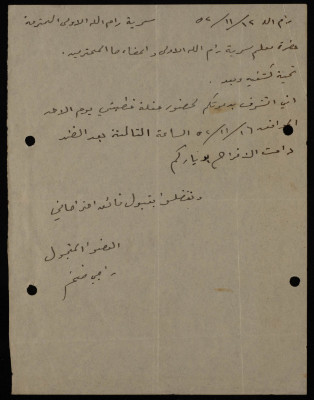 رام الله ١٢ / ١١ / ٥٢ سرية رام الله الاولى المحترمة
حضرة معلم سرية رام الله الاولى واعضاءها المحترمين.
تحية كشفية وبعد
اني اتشرف بدعوتكم لحضور حفلة يوم الاحد
الموافق ١٦ / ١١ / ٥٢ الساعة الثالثة بعد الظهر
دامت الافراح بدياركم
وتفضلوا بقبول فائق احتراماتي
العضو
راجي